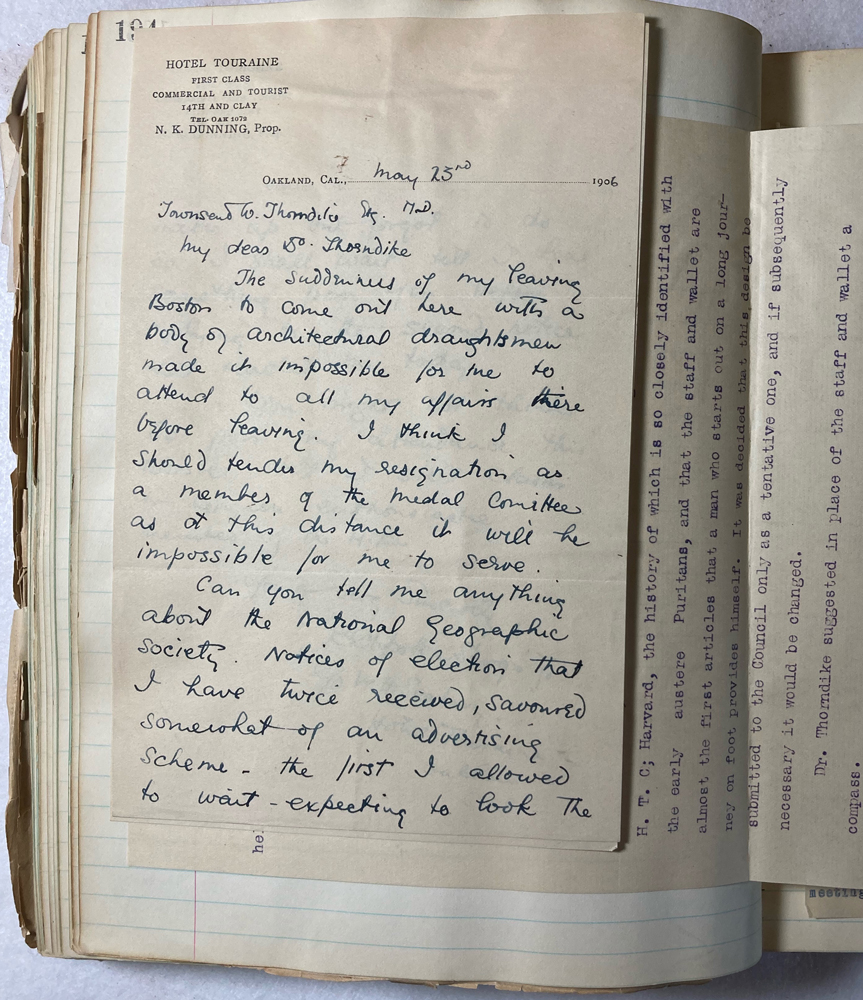 194
HOTEL TOURAINE
FIRST CLASS
COMMERCIAL AND TOURIST
14TH AND CLAY
TEL. OAK 1072
N. K. DUNNING, Prop.
OAKLAND, CAL., May 23rd 1906
Townsend W. Thorndike Esq. M.D.
My dear Dr. Thorndike
The suddenness of my leaving
Boston to come out here with a
body of architectural draughtsmen
made it impossible for me to
attend to all my affairs there
before leaving. I think I
should tender my resignation as
a member of the Medal Comittee
as at this distance it will be
impossible for me to serve.
Can you tell me anything
about the National Geographic
Society. Notices of election that
I have twice received, savoured
somewhat of an advertising
scheme - the first I allowed
to wait - expecting to look the
he
H. T. C; Harvard, the history of which is so closely identified with
the early austere Puritans, and that the staff and wallet are
almost the first articles that a man who starts out on a long jour-
ney on foot provides himself. It was decided that this design be
submitted to the Council only as a tentative one, and if subsequently
necessary it would be changed.
Dr. Thorndike suggested in place of the staff and wallet a
compass.
meeting